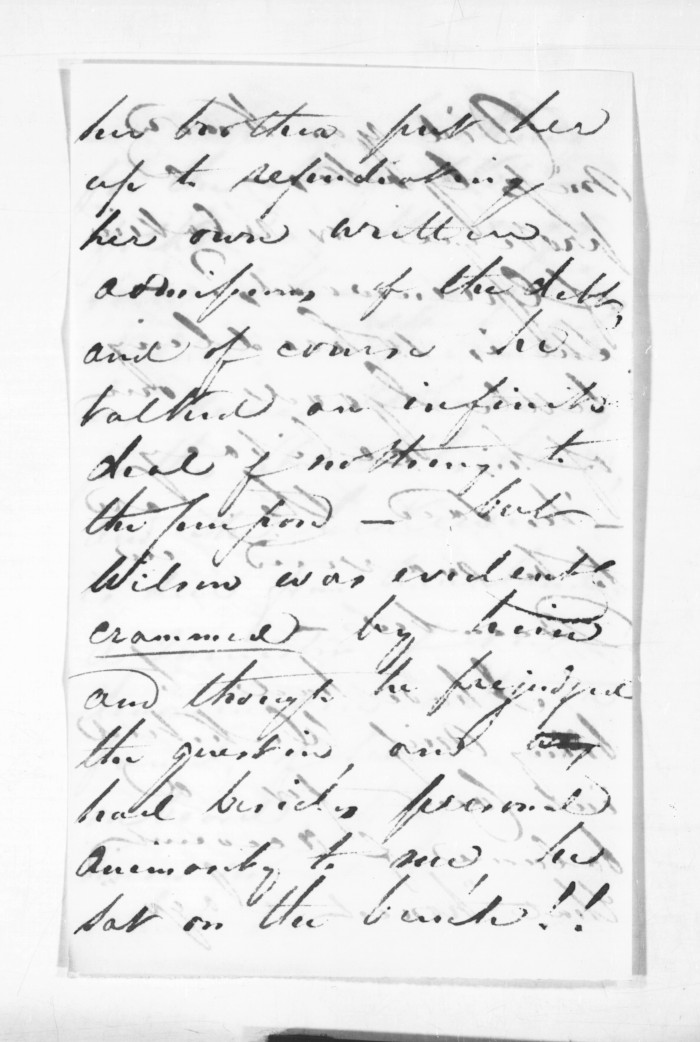 her brother put her
up to repudiating
her own written
admissions of the debt,
and of course he
talked an infinite
deal of nothing to
the purpose — but
Wilson was evidently
crammed by him
and though he prejudged
the question, and
had besides personal
animosity to me, he
sat on the bench!!